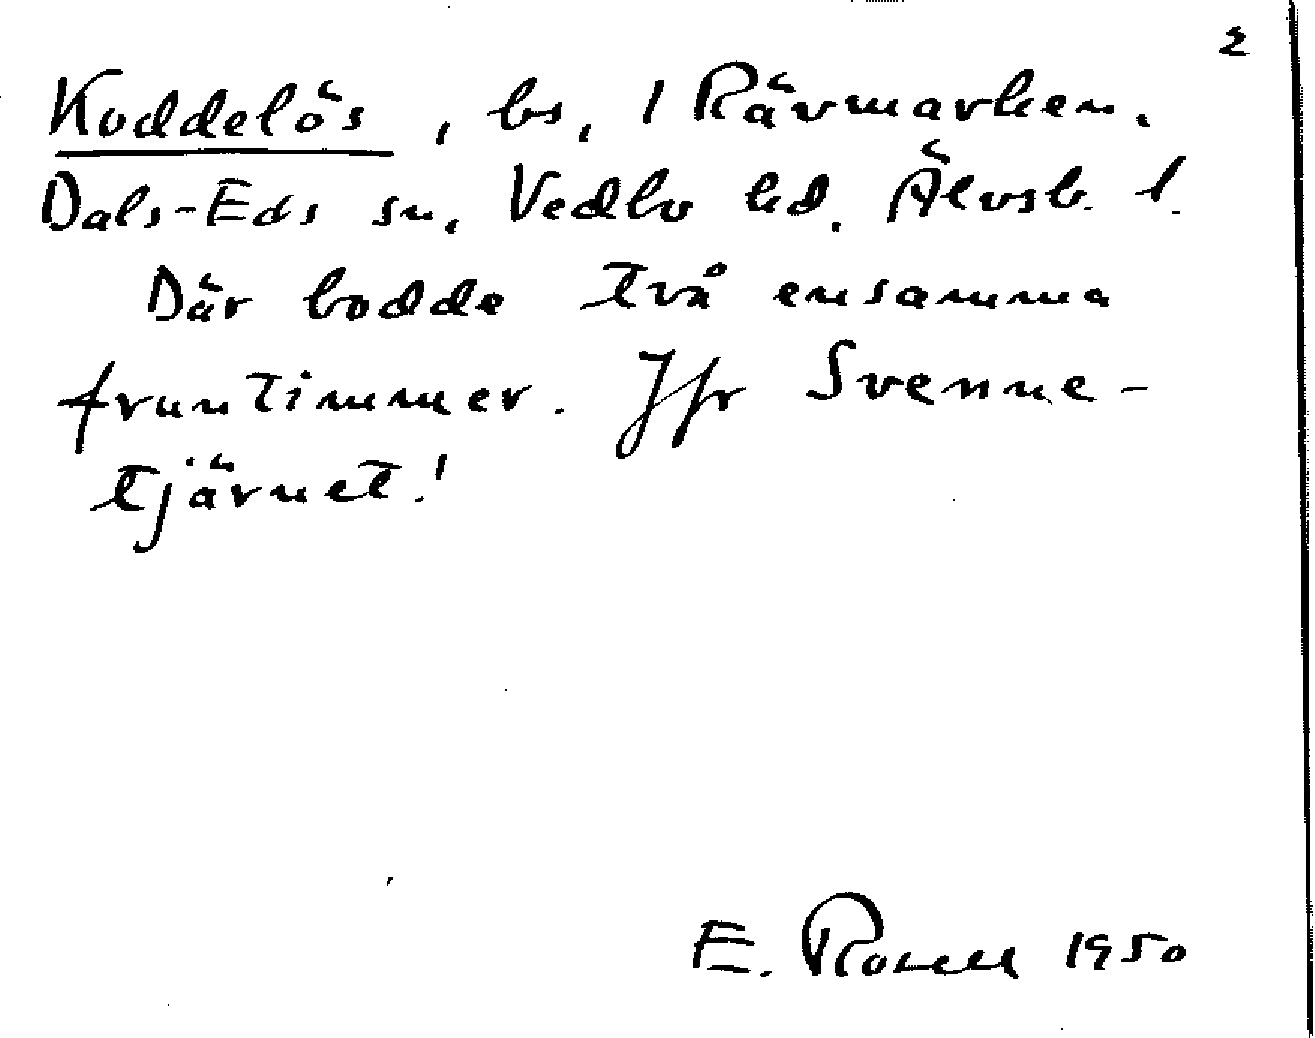 2
Koddelös, bs, 1 Rävmarken.
Dals-Eds sn, Vedbo hd. Älvsb. l.
Där bodde två ensamma
fruntimmer. Jfr Svenne-
tjärnet!
E. Rosell 1950